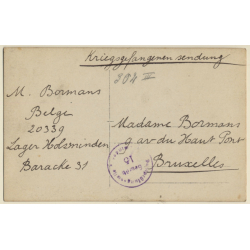 Kriegsgefangenensendung
204 II
M. Bormans
Belge
20339
Lager Holzminden
Barache 31
Madame Bormans
9 av du Haut Pont
Bruxelles
15